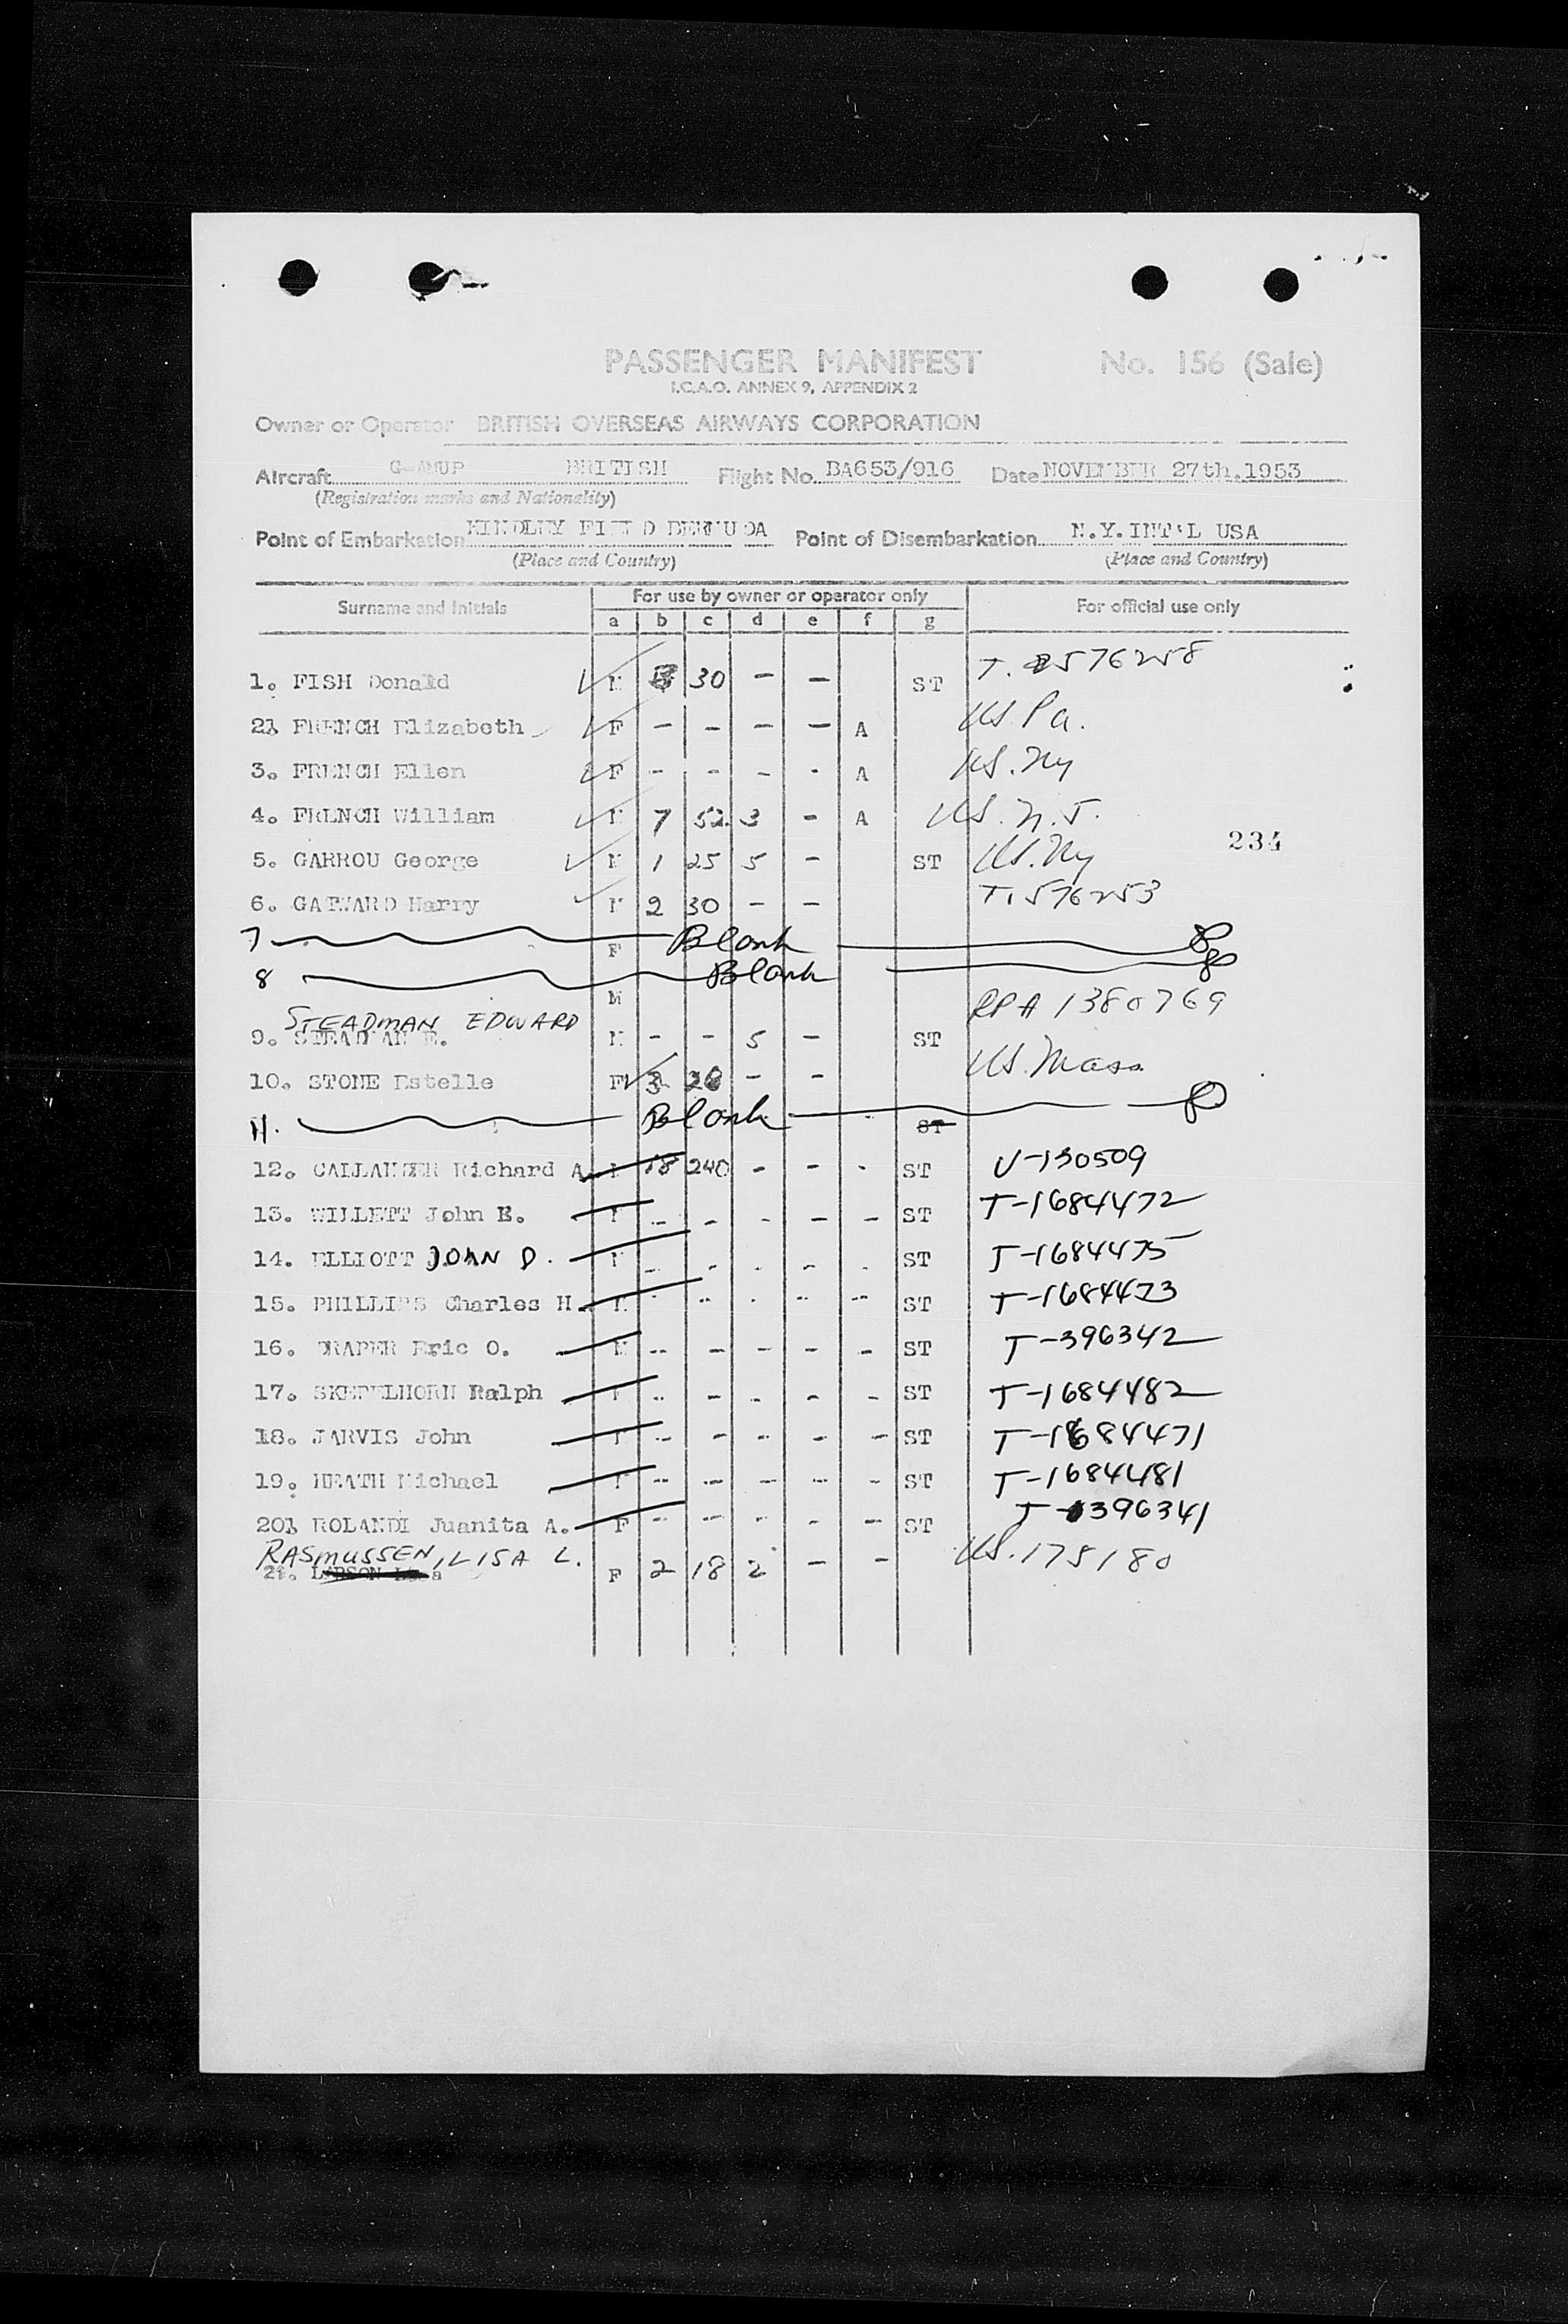 PASSENGER MANIFEST No. 156 (Sale)
I.C.A.O. ANNEX 9, APPENDIX 2
Owner or Operator BRITISH OVERSEAS AIRWAYS CORPORATION
Aircraft BRITISH Flight No. BA653/916 Date NOVEMBER 27th.1953
(Registration marks and Nationality)
Point of Embarkation KINDLEY FIELD BERMUDA Point of Disembarkation N.Y.INT'L USA
(Place and Country) (Place and Country)
Surname and Initials For use by owner or operator only For official use only
a b c d e f g
1. FISH Donald M 30 - - ST T. 576258
21 FRENCH Elizabeth F - - - - A US. Pa.
3. FRENCH Ellen F - - - - A US. Ny
4. FRENCH William M 7 52. 3 - A US. N.J.
234
5. GARROU George M 1 25 5 - ST US. Ny
6. Harry M 2 30 - - T. 576253
7 Blank
F
8 Blank
M
STEADMAN EDWARD RPA 1380769
9. STEADMAN E. M - - 5 - ST
10. STONE Estelle F 3 - - US. Mass
11. Blank ST
12. Richard A. M 18 240 - - - ST V-130509
13. WILLETT John E. M - - - - - ST T-1684472
14. ELLIOTT JOHN D. M - - - - - ST T-1684475
15. PHILLIPS Charles H. M - - - - - ST T-1684473
16. DRAPER Eric O. M - - - - - ST T-396342
17. Ralph M - - - - - ST T-1684482
18. JARVIS John M - - - - - ST T-1684471
19. HEATH Michael M - - - - - ST T-1684481
201 ROLANDI Juanita A. F - - - - - ST T-396341
RASMUSSEN, LISA L. US. 175180
21. F 2 18 2 - -